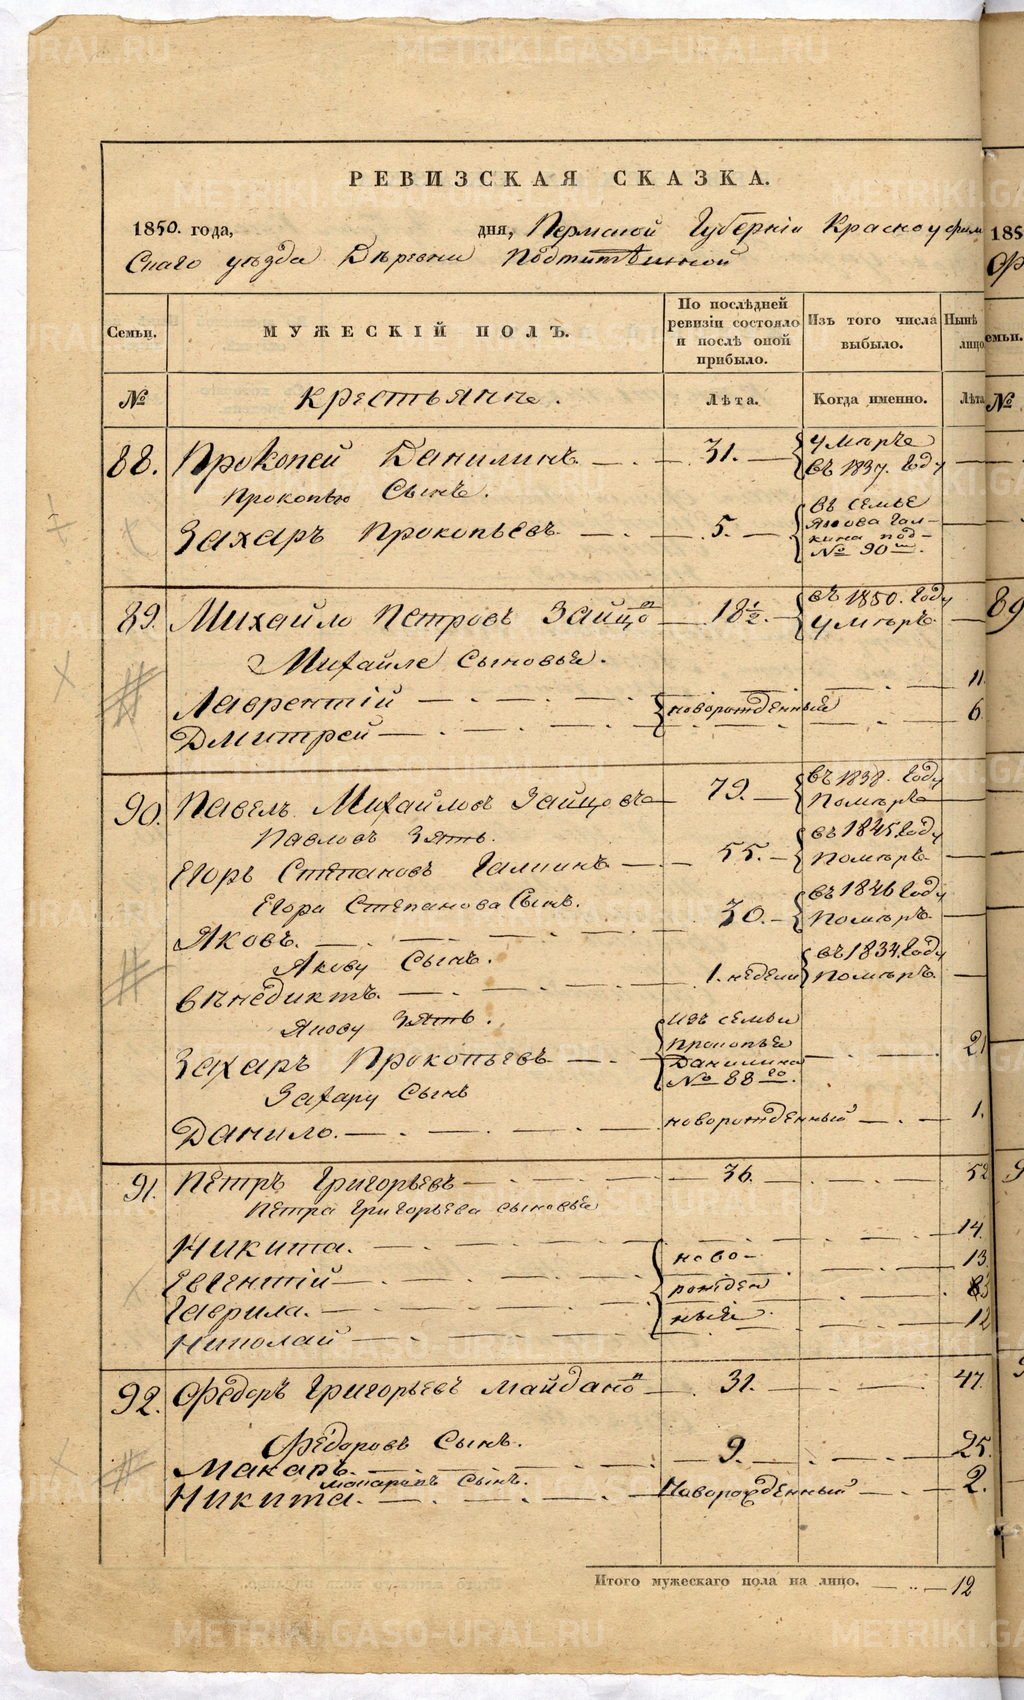 РЕВИЗСКАЯ СКАЗКА.
1850. года, дня, Пермской Губернiи Красноуфим
Скаго уѣзда Дѣревни
Семьи. МУЖЕСКІЙ ПОЛЪ. По послѣдней ревизіи состояло и послѣ оной прибыло. Изъ того числа выбыло. Нынѣ лицо
№ Крестьянне. Лѣта. Когда именно. Лѣта
88. Прокопей Данилинъ 31. Умѣръ
въ 1837. году
Прокопью Сынъ.
Захаръ Прокопьевъ 5. въ семье
Якова Гал-
кина под-
№ 90 мъ.
89. Михайло Петровъ Зайцовъ 18½. въ 1850. году
Умѣръ
Михайле Сыновье.
Лаврентій 11
Дмитрей новорожденные 6
90. Павелъ Михайловъ Зайцовъ 79. въ 1838. году
Помѣръ
Павловъ Зять.
Егоръ Степановъ Галкинъ 55. въ 1845. году
Помѣръ
Егора Степанова Сынъ.
Яковъ. 30. въ 1846 году
Помѣръ
Якову Сынъ.
Вѣнедиктъ. 1. недели въ 1834. году
Помѣръ
Якову Зять.
Захаръ Прокопьевъ Изъ семьи
Прокопья
Данилина
№ 88 го. 21
Захару Сынъ
Данило. новорожденный 1.
91. Петръ Григорьевъ 36. 52
Петра Григорьева сыновье
Никита. 14.
Евгентій ново- 13
Гаврила. рожден
Николай ные. 12
92. Федоръ Григорьевъ Майдановъ 31. 47.
Федоровъ Сынъ.
Макаръ. 9. 25.
Макаровъ Сынъ.
Никита. Новорожденный 2.
Итого мужескаго пола на лицо. 12
185
емьи.
№
89
METRIKI.GASO-URAL.RU